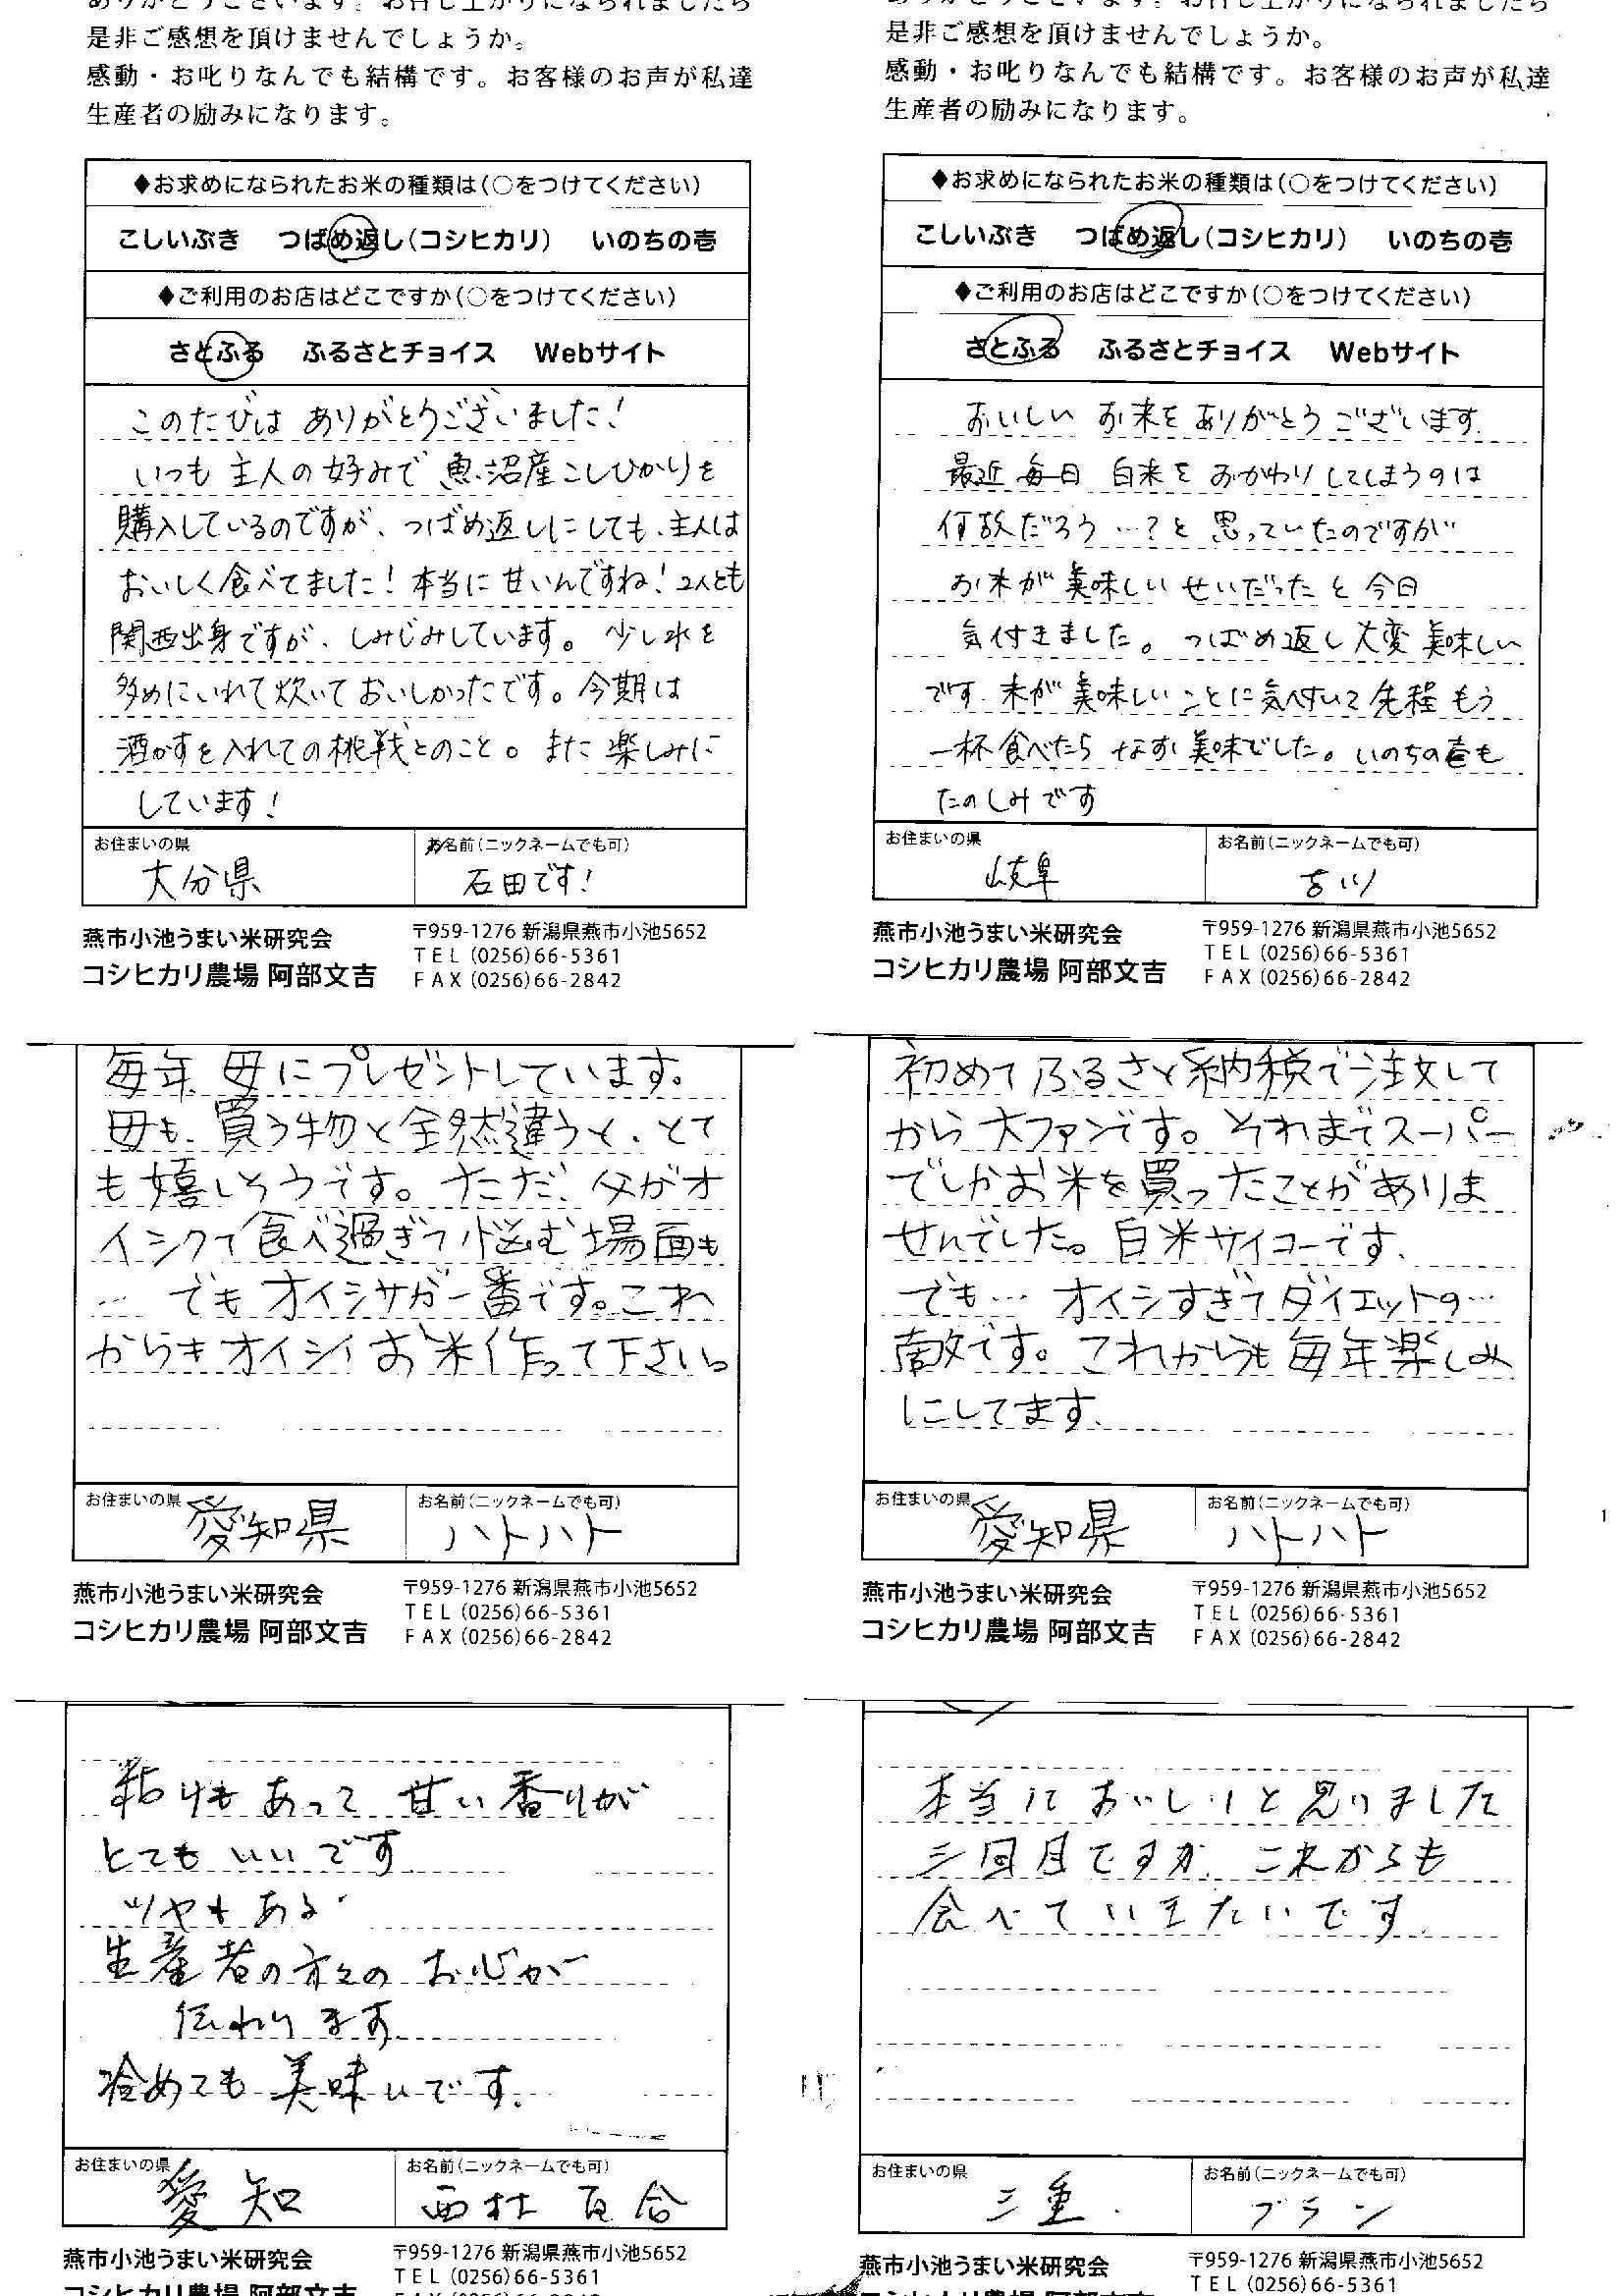 ありがとうございます。お召し上がりになられましたら
是非ご感想を頂けませんでしょうか。
感動・お叱りなんでも結構です。お客様のお声が私達
生産者の励みになります。
◆お求めになられたお米の種類は(○をつけてください)
こしいぶき つばめ返し(コシヒカリ) いのちの壱
◆ご利用のお店はどこですか(○をつけてください)
さとふる ふるさとチョイス Webサイト
このたびは ありがとうございました!
いつも 主人の好みで 魚沼産こしひかりを
購入しているのですが、つばめ返しにしても、主人は
おいしく食べてました!本当に甘いんですね!2人とも
関西出身ですが、しみじみしています。少し水を
多めにいれて炊いておいしかったです。今期は
酒かすを入れての挑戦とのこと。また楽しみに
しています!
お住まいの県
大分県
お名前(ニックネームでも可)
石田です!
燕市小池うまい米研究会
コシヒカリ農場 阿部文吉
〒959-1276 新潟県燕市小池5652
TEL (0256)66-5361
FAX (0256)66-2842
ありがとうございます。お召し上がりになられましたら
是非ご感想を頂けませんでしょうか。
感動・お叱りなんでも結構です。お客様のお声が私達
生産者の励みになります。
◆お求めになられたお米の種類は(○をつけてください)
こしいぶき つばめ返し(コシヒカリ) いのちの壱
◆ご利用のお店はどこですか(○をつけてください)
さとふる ふるさとチョイス Webサイト
おいしい お米をありがとうございます.
最近 毎日 白米をおかわりしてしまうのは
何故だろう…?と思っていたのですが
お米が美味しいせいだったと今日
気付きました。つばめ返し大変美味しい
です.米が美味しいことに気付いて先程もう
一杯食べたら なお美味でした。いのちの壱も
たのしみです
お住まいの県
岐阜
お名前(ニックネームでも可)
古川
燕市小池うまい米研究会
コシヒカリ農場 阿部文吉
〒959-1276 新潟県燕市小池5652
TEL (0256)66-5361
FAX (0256)66-2842
毎年、母にプレゼントしています。
母も、買う物と全然違うと、とて
も嬉しそうです。ただ、父がオ
イシクて食べ過ぎて悩む場面も
… でもオイシサが一番です。これ
からもオイシイお米作って下さい。
お住まいの県
愛知県
お名前(ニックネームでも可)
ハトハト
燕市小池うまい米研究会
コシヒカリ農場 阿部文吉
〒959-1276 新潟県燕市小池5652
TEL (0256)66-5361
FAX (0256)66-2842
初めてふるさと納税で注文して
から大ファンです。それまでスーパー
でしかお米を買ったことがありま
せんでした。白米サイコーです.
でも… オイシすぎてダイエットの…
敵です。これからも毎年楽しみ
にしてます.
お住まいの県
愛知県
お名前(ニックネームでも可)
ハトハト
燕市小池うまい米研究会
コシヒカリ農場 阿部文吉
〒959-1276 新潟県燕市小池5652
TEL (0256)66-5361
FAX (0256)66-2842
粘りもあって 甘い香りが
とても いいです
ツヤもある
生産者の方々の お心が
伝わります
冷めても 美味いです.
お住まいの県
愛知
お名前(ニックネームでも可)
西村 百合
燕市小池うまい米研究会
コシヒカリ農場 阿部文吉
〒959-1276 新潟県燕市小池5652
TEL (0256)66-5361
本当においしいと思いました
三回目ですが、これからも
食べていきたいです.
お住まいの県
三重.
お名前(ニックネームでも可)
ブラン
燕市小池うまい米研究会
〒959-1276 新潟県燕市小池5652
TEL (0256)66-5361